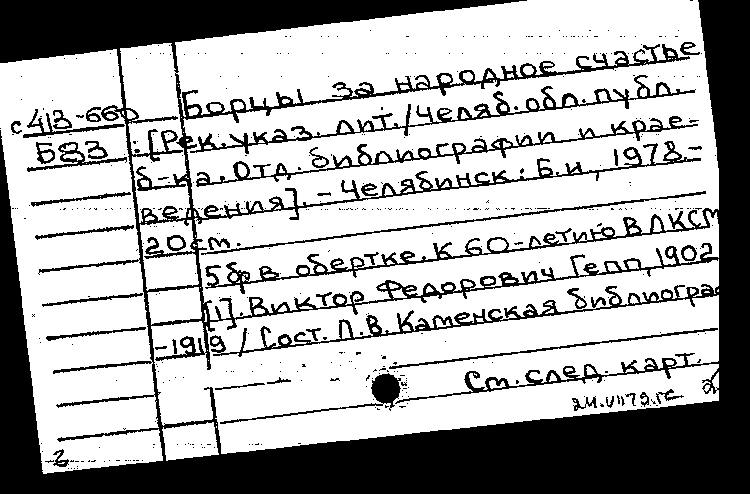 Борцы за народное счастье
с413-660 : [Рек. указ. лит./Челяб. обл. публ.
Б83 б-ка. Отд. библиографии и крае=
ведения]. - Челябинск : Б.и., 1978.-
20 см.
5 бр в обертке. К 60-летию ВЛКСМ
[1]. Виктор Федорович Гепп, 1902
-1919 / Сост. Л.В. Каменская библиогра
См. след. карт.